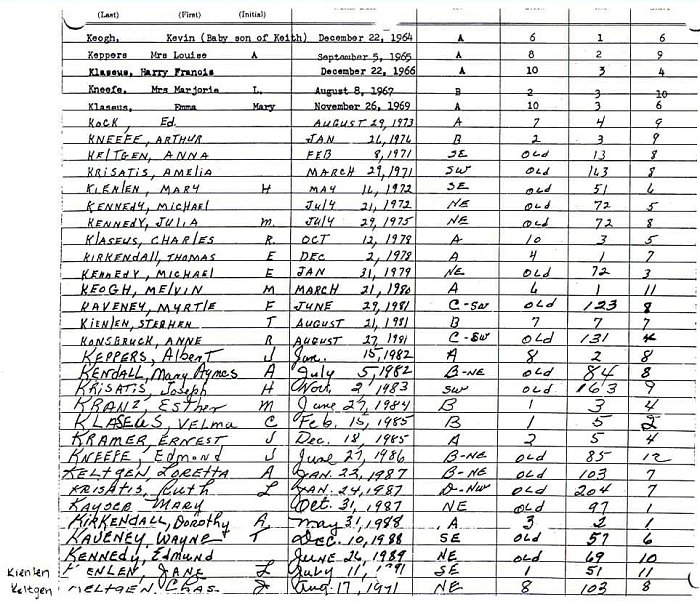 (Last) (First) (Initial)
Keogh, Kevin (Baby son of Keith) December 22, 1964 A 6 1 6
Keppers Mrs Louise A September 5, 1965 A 8 2 9
Klaseus, Harry Francis December 22, 1966 A 10 3 4
Kneefe, Mrs Marjorie L. August 8, 1967 B 2 3 10
Klaseus, Emma Mary November 26, 1969 A 10 3 6
KOCK, Ed. AUGUST 29, 1973 A 7 4 9
KNEEFE, ARTHUR JAN 26, 1976 B 2 3 9
KELTGEN, ANNA FEB 8, 1971 SE OLD 13 8
KRISATIS, AMELIA MARCH 29, 1971 SW OLD 143 8
KIENLEN, MARY H MAY 16, 1972 SE OLD 51 6
KENNEDY, MICHAEL JULY 21, 1972 NE OLD 72 5
KENNEDY, JULIA M. JULY 29, 1975 NE OLD 72 8
KLASEUS, CHARLES R. OCT 12, 1978 A 10 3 5
KIRKENDALL, THOMAS E DEC 2, 1978 A 4 1 7
KENNEDY, MICHAEL E JAN 31, 1979 NE OLD 72 3
KEOGH, MELVIN M MARCH 21, 1980 A 6 1 11
KAVENEY, MYRTLE F JUNE 29, 1981 C-SW OLD 123 8
KIENLEN, STEPHEN T AUGUST 21, 1981 B 7 7 7
KONSBRUCK, ANNE R AUGUST 27, 1981 C-SW OLD 131 4
KEPPERS, Albert J Jan. 15, 1982 A 8 2 8
KENDALL, Mary Agnes A July 5, 1982 B-NE OLD 84 8
KRISATIS, Joseph H Nov. 2, 1983 SW OLD 163 9
KRANZ, ESTHER M June 27, 1984 B 1 3 4
KLASEUS, VELMA C Feb. 15, 1985 B 1 5 2
KRAMER, ERNEST J Dec. 18, 1985 A 2 5 4
KNEEFE, Edmond J June 27, 1986 B-NE OLD 85 12
KELTGEN LORETTA A JAN. 22, 1987 B-NE OLD 103 7
KRISATIS, Ruth L JAN. 24, 1987 D-NW OLD 204 7
KAYSER MARY Oct. 31, 1987 NE OLD 97 1
KIRKENDALL, Dorothy A, May 31, 1988 A 3 2 1
KAVENEY, WAYNE T DEC. 10, 1988 SE OLD 57 6
KENNEDY, Edmund JUNE 26, 1989 NE OLD 69 10
Kienlen KIENLEN, JANE L July 11, 1991 SE 1 51 11
Keltgen KELTGEN, CHAS. J. Aug. 17, 1991 NE 8 103 8